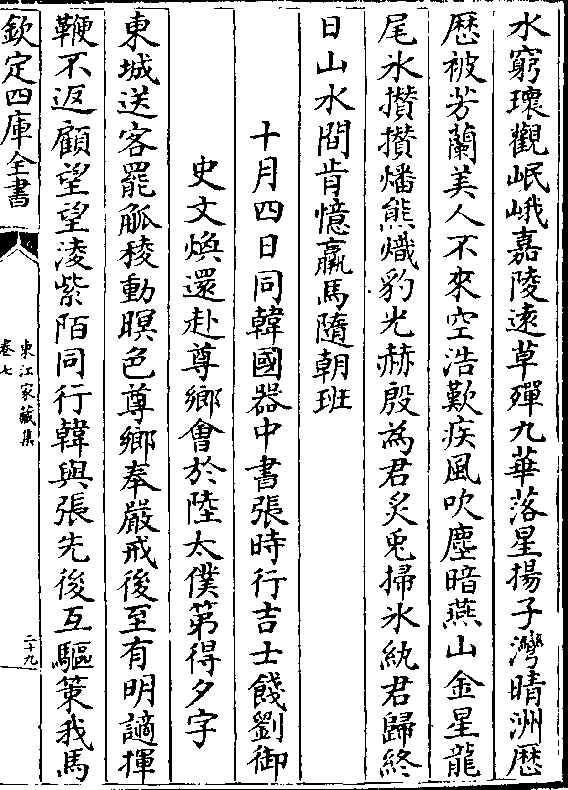 水窮瓌觀岷峨嘉陵逺草殫九華落星揚子灣晴洲歴
歴被芳蘭美人不來空浩歎疾風吹塵暗燕山金星龍
尾氷攅攅燔熊熾豹光赫殷為君炙兎掃氷紈君歸終
日山水間肯憶羸馬隨朝班
十月四日同韓國器中書張時行吉士餞劉御
史文煥還赴尊鄉會於陸太僕第得夕字
東城送客罷觚稜動暝色尊鄉奉嚴戒後至有明謫揮
鞭不返顧望望淩紫陌同行韓與張先後互驅策我馬
欽定四庫全書
東江家藏集
卷七
二十九